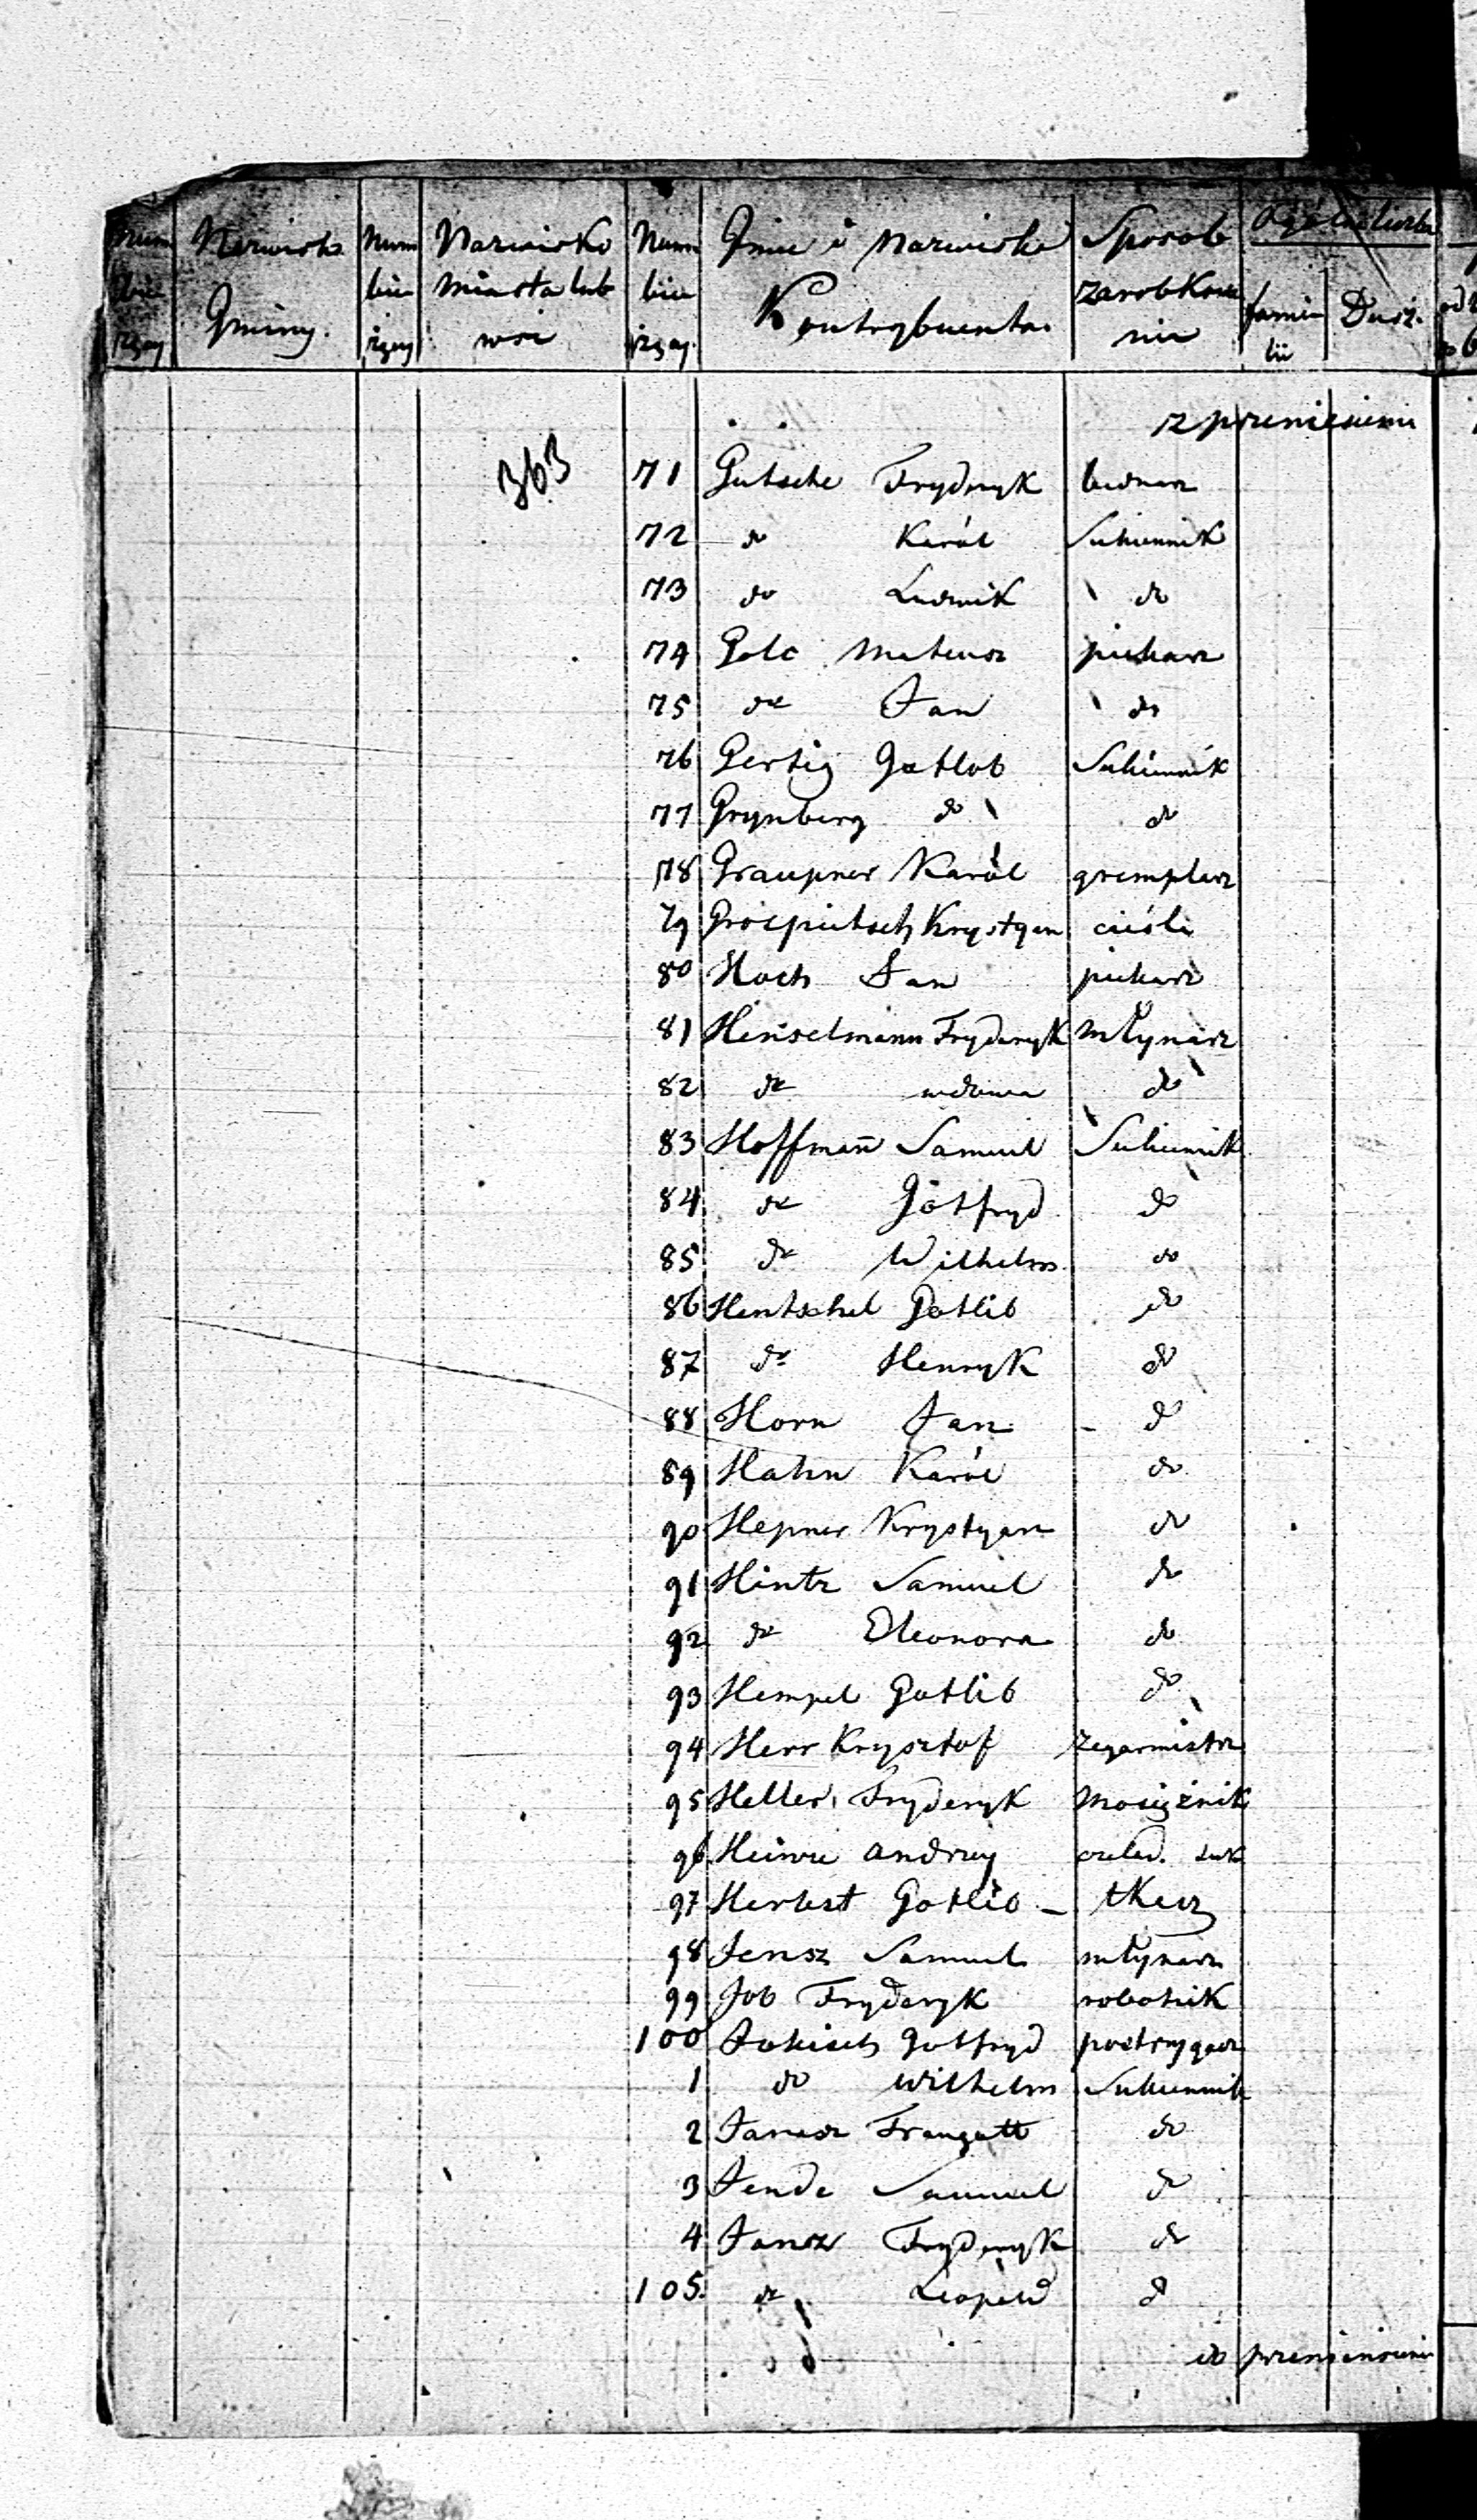 Num Nazwisko Num Nazwisko Num Jmie i Nazwisko Sposob Ogólna liczba
bie Gminy. bie Miasta lub bie Kontrybuenta. zarobkowa famie Dusz.
rzący rzący wsi rzący nia lii
z przeniesienia
363 71 Gutsche Frydryk bednarz
72 do Karól Sukiennik
73 do Ludwik do
74 Golc Mateusz piekarz
75 do Jan do
76 Gertig Gotlob Sukiennik
77 Grynberg do do
78 Graupner Karól gremplarz
79 Krystyan cieśla
80 Hoch Jan piekarz
81 Henselmann Fryderyk Młynarz
82 do wdowa do
83 Hoffman̄ Samuel Sukiennik
84 do Gotfryd do
85 do Wilhelm do
86 Hentschel Gotlib do
87 do Henryk do
88 Horn Jan - do
89 Hahn Karól do
90 Hepner Krystyan do
91 Hintz Samuel do
92 do Eleonora do
93 Hempel Gotlib do
94 Herr Krysztof zegarmistrz
95 Heller Fryderyk Mosiężnik
96 Heinze Andrzej czelad. suk
97 Herbst Gotlib - tkacz
98 Jensz Samuel młynarz
99 Job Fryderyk robotnik
100 Jokisch Gotfryd postrzygacz
1 do Wilhelm Sukiennik
2 Janesz Traugott do
3 Jende Samuel do
4 Jansz Frydryk do
105. do Leopold do
do przeniesienia